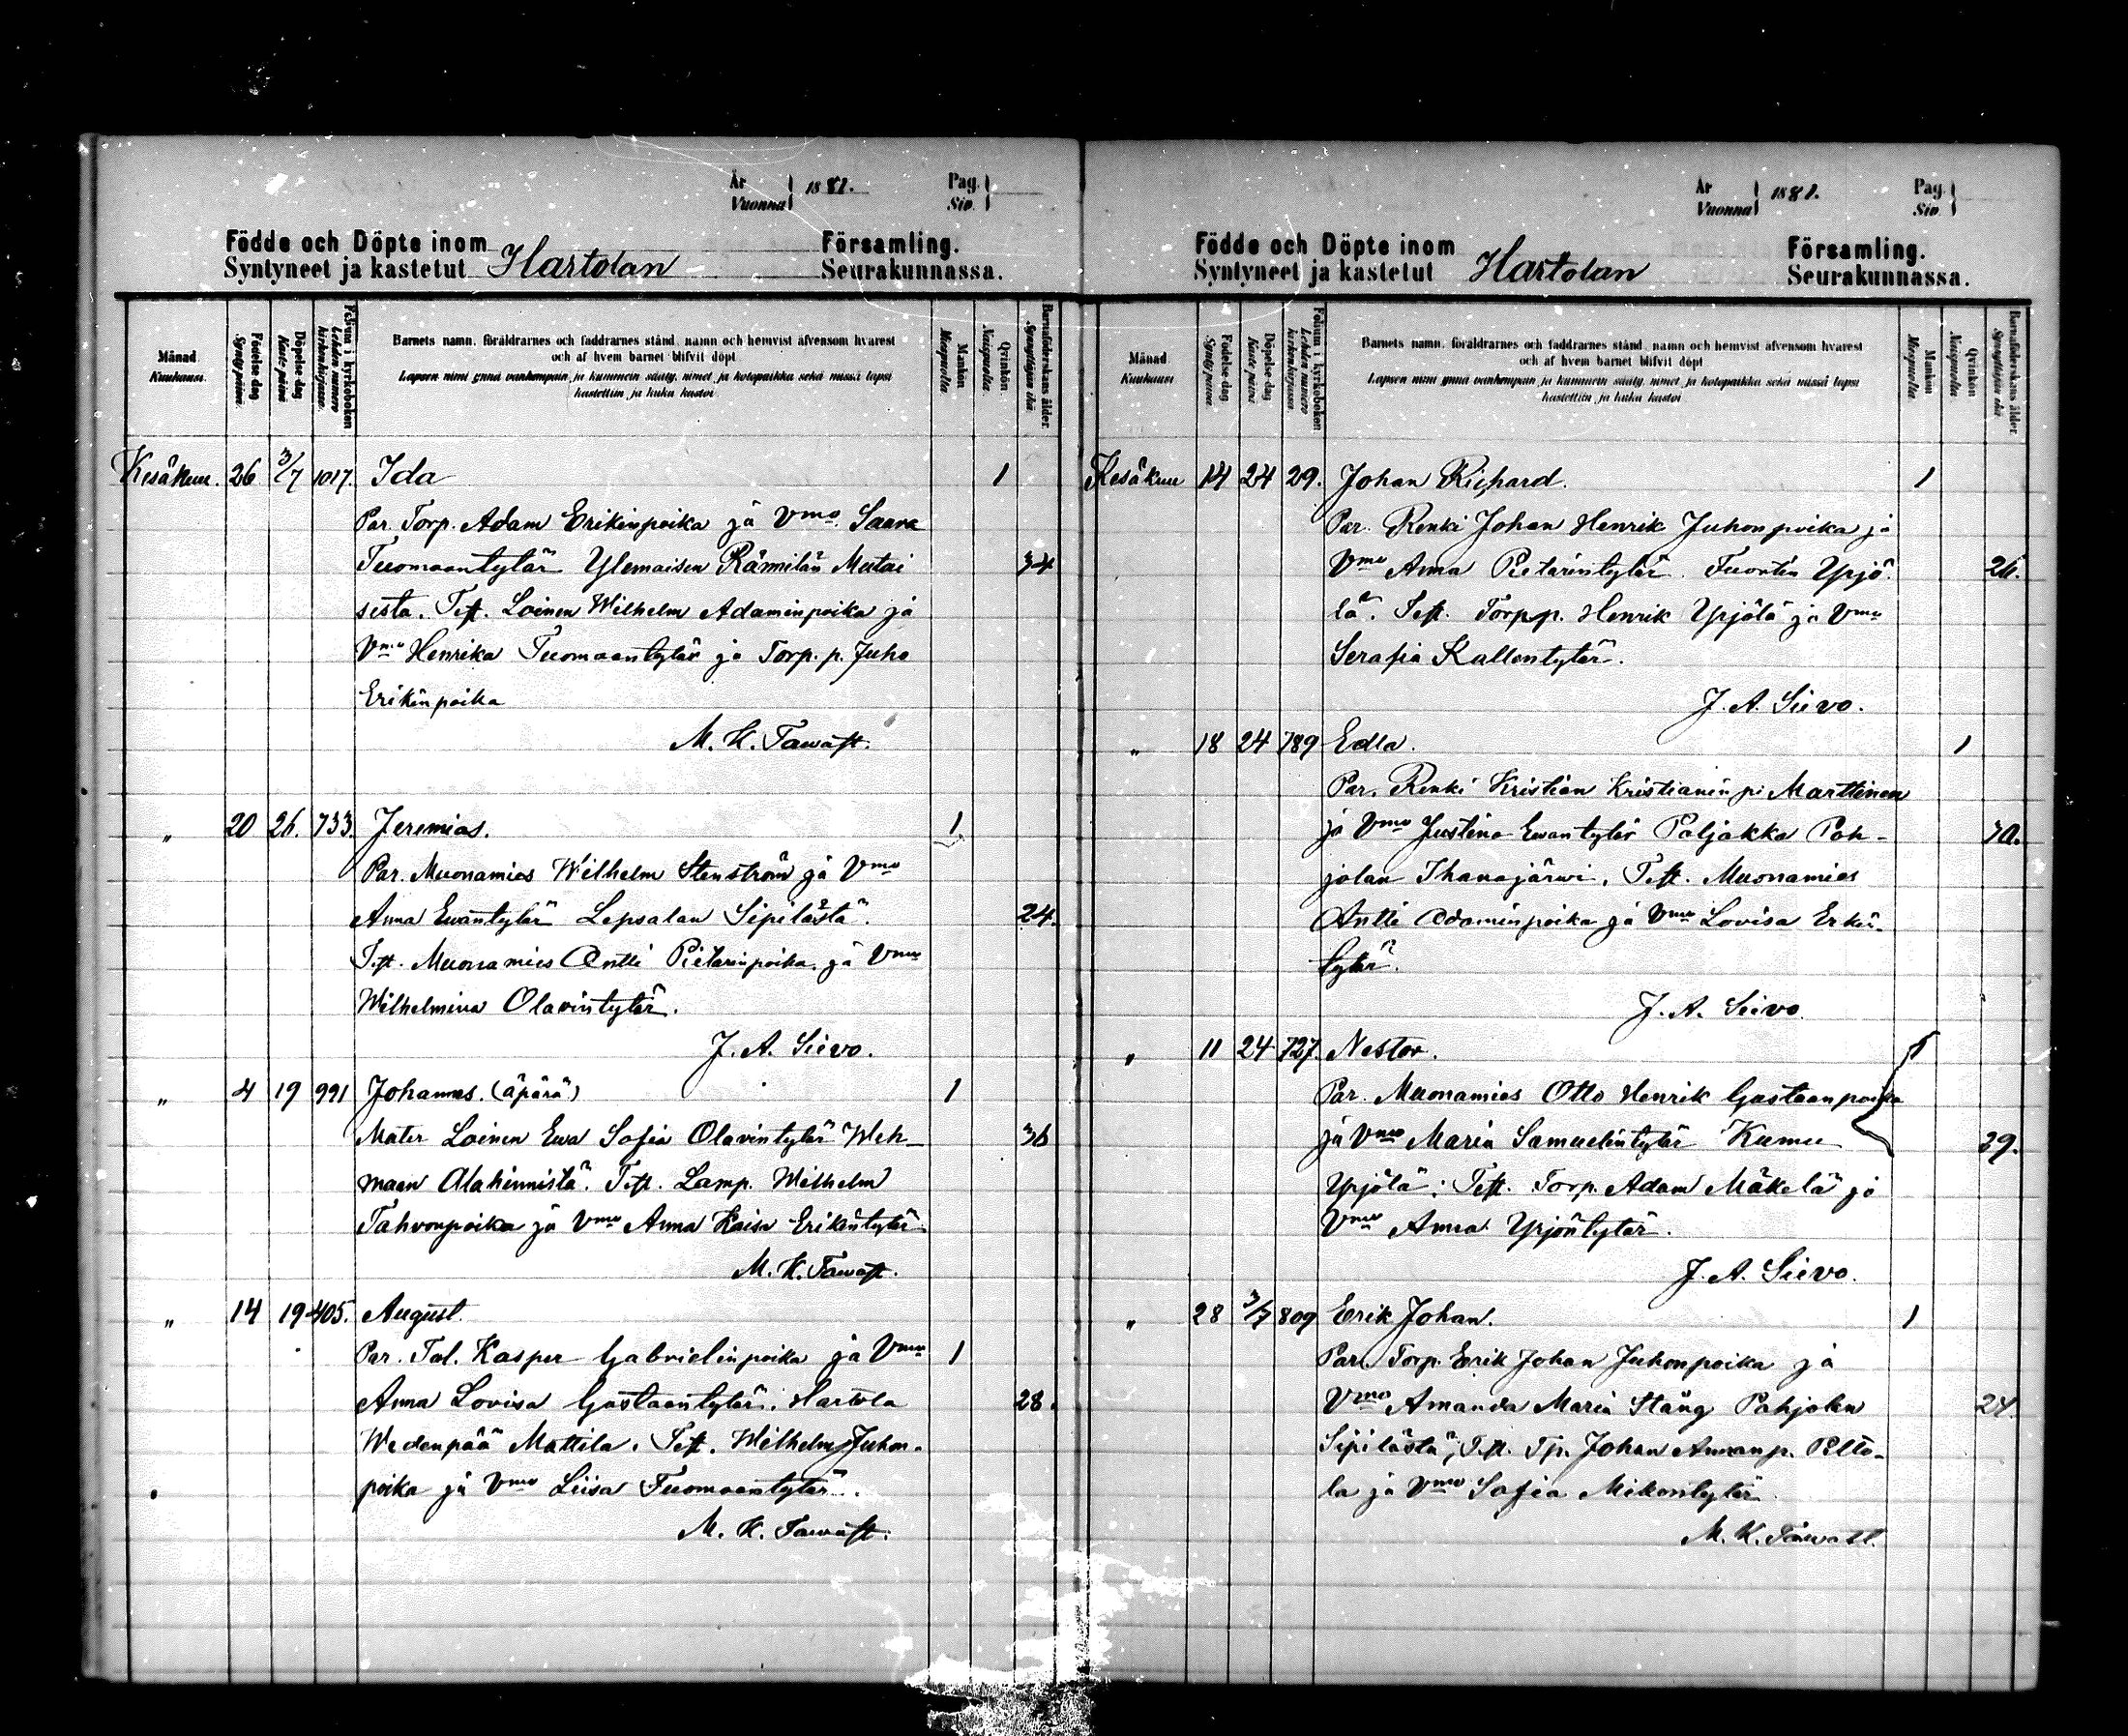 År
Vuonna } 1881. Pag. Siv. }
Födde och Döpte inom Församling.
Syntyneet ja kastetut Hartolan Seurakunnassa.
Månad Kuukausi.
Födelse dag Syntypäivä.
Döpelse dag Kaste päivä
Folium i kyrkoboken Lehden numero kirkonkirjassa.
Barnets namn, föräldrarnes och faddrarnes stånd, namn och hemvist äfvensom hvarest
och af hvem barnet blifvit döpt
Lapsen nimi ynnä vanhempain ja kummein sääty, nimet ja kotopaikka sekä missä lapsi
kastettiin ja kuka kastoi
Mankön Miespuolta
Qvinkön. Naispuolta.
Barnaföderskans ålder. Synnyttäjän ikä
Kesäkuu. 26 3/7 1017. Ida 1
Par. Torp. Adam Erikinpoika ja Vmo. Saara
Tuomaantytär Ylemaisen Rämilän Mutai 34
sista. Test. Loinen Wilhelm Adaminpoika ja
Vmo Henrika Tuomaantytär ja Torp. p. Juho
Erikinpoika
M. K. Tawast.
" 20 26. 733. Jeremias. 1
Par. Muonamies Wilhelm Stenström ja Vmo
Anna Ewantytär Lepsalan Sipilästä. 24.
Test. Muonamies Antti Pietarinpoika ja Vmo
Wilhelmina Olavintytär.
J. A. Sievo.
" 4 19 991 Johannes. (äpärä) 1
Mater Loinen Ewa Sofia Olavintytär Weh- 36
maan Alahinnistä. Test. Lamp. Wilhelm
Tahvonpoika ja Vmo Anna Kaisa Erikintytär
M. K. Tawast.
" 14 19 405. August.
Par. Tal. Kasper Gabrielinpoika ja Vmo 1
Anna Lovisa Gustaantytär. Hartola 28.
Wedenpää Mattila. Test. Wilhelm Juhon-
poika ja Vmo Liisa Tuomaantytär.
M. K. Tawast.
År
Vuonna } 1881. Pag. Siv. }
Födde och Döpte inom Församling.
Syntyneet ja kastetut Hartolan Seurakunnassa.
Månad Kuukausi
Födelse dag Syntypäivä.
Döpelse dag Kaste päivä
Folium i kyrkoboken Lehden numero kirkonkirjassa.
Barnets namn, föräldrarnes och faddrarnes stånd, namn och hemvist äfvensom hvarest
och af hvem barnet blifvit döpt
Lapsen nimi ynnä vanhempain ja kummein sääty, nimet ja kotopaikka sekä missä lapsi
kastettiin ja kuka kastoi
Mankön Miespuolta.
Qvinkön Naispuolta
Barnaföderskans ålder. Synnyttäjän ikä
Kesäkuu 14 24 29. Johan Richard. 1
Par. Renki Johan Henrik Juhonpoika ja
Vmo Anna Pietarintytär. Yrjö- 26.
lä. Test. Torp p. Henrik Yrjölä ja Vmo
Serafia Kallentytär.
J. A. Sievo.
" 18 24 789 Edla. 1
Par. Renki Kristian Kristianin p. Marttinen
ja Vmo Justina Ewantytär Paljakka Poh- 30.
jolan Ihanajärwi. Test. Muonamies
Antti Adaminpoika ja Vmo Lovisa Erkin-
tytär.
J. A. Sievo.
" 11 24 727. Nestor. 1
Par. Muonamies Otto Henrik Gustaanpoika
ja Vmo Maria Samuelintytär Kumu 39.
Yrjölä; Test. Torp. Adam Mäkelä ja
Vmo Anna Yrjöntytär.
J. A. Sievo.
" 28 3/7 809 Erik Johan. 1
Par. Torp. Erik Johan Juhonpoika ja
Vmo Amanda Maria Stång Pohjolan 24.
Sipilästä; Test. Tp. Johan Annanp. Pelto-
la ja Vmo Sofia Mikontytär.
M. K. Tawast.